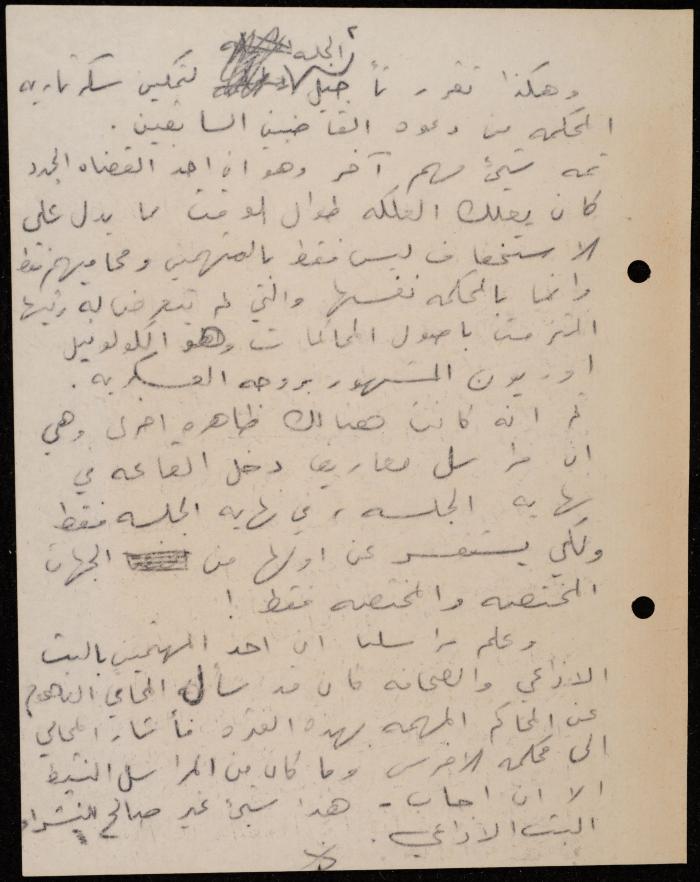 الجلسة
وهكذا تقرر تأجيل لتمكين سكرتاريه
المحكمه من دعوه القاضيين السابقين .
ثمه شيئ مهم آخر وهو ان احد القضاه الجدد
كان يعلك العلكه طوال الوقت مما يدل على
الاستخفاف ليس فقط بالمتهمين ومحاميهم فقط
وانما بالمحكمه نفسها والتي لم يتعرض له رئيسها
المتزمت باصول المحاكمات وهو الكولونيل
اوريون المشهور بروحه العسكريه .
ثم انه كانت هنالك ظاهره اخرى وهي
ان مراسل معاريف دخل القاعه في
نهايه الجلسه ، في نهايه الجلسه فقط
ولكي يستفسر عن اولها من الجهات
المختصه والمختصه فقط !
وعلم مراسلنا ان احد المهتمين بالبث
الاذاعي والصحافه كان قد سأل المحامي
عن المحاكم المهمه بهذه الفتره فأشار المحامي
الى محكمه الافرس وما كان من المراسل النشيط
الا ان اجاب - هذا شيئ غير صالح
البث الاذاعي .